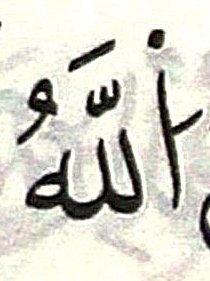 اَ۬للَّهُ